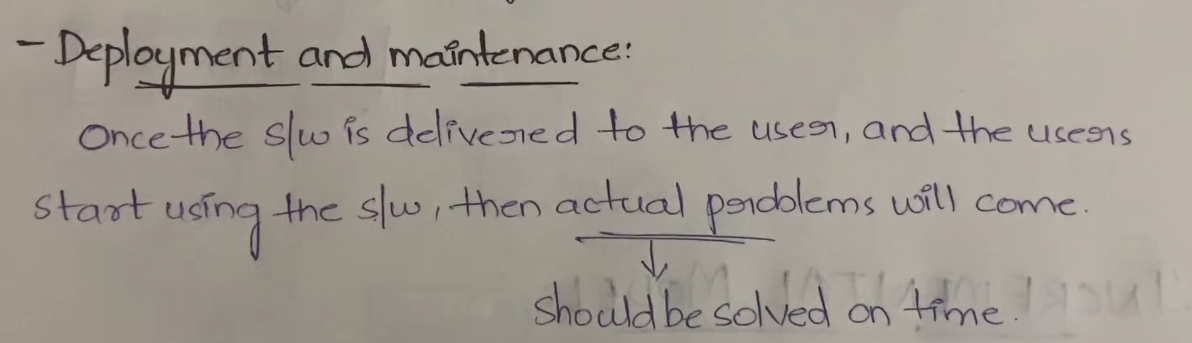 - Deployment and maintenance:
Once the s/w is delivered to the user, and the users
start using the s/w, then actual problems will come.
↓
should be solved on time.